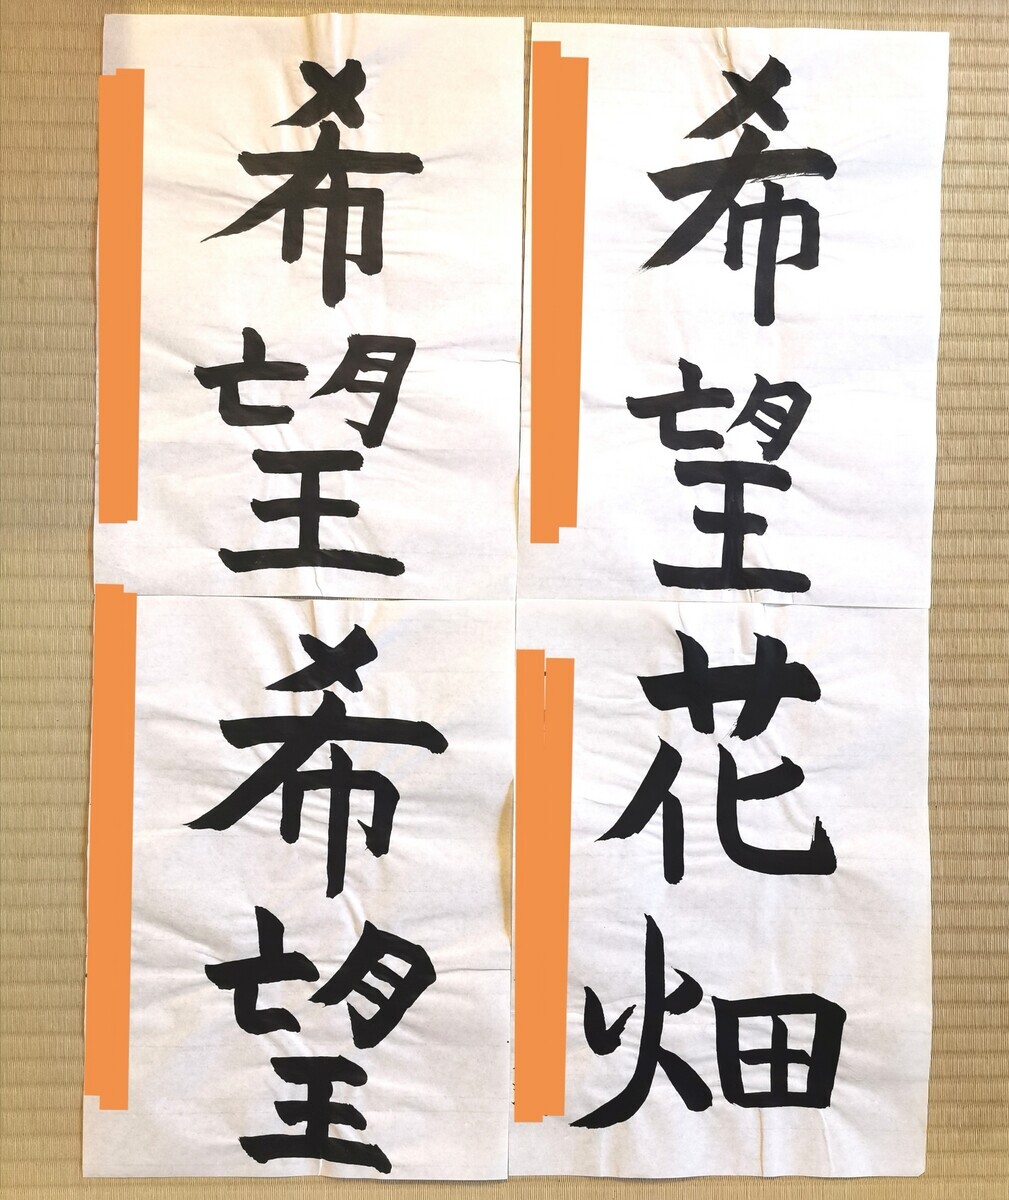 希望
希望
希望
花畑